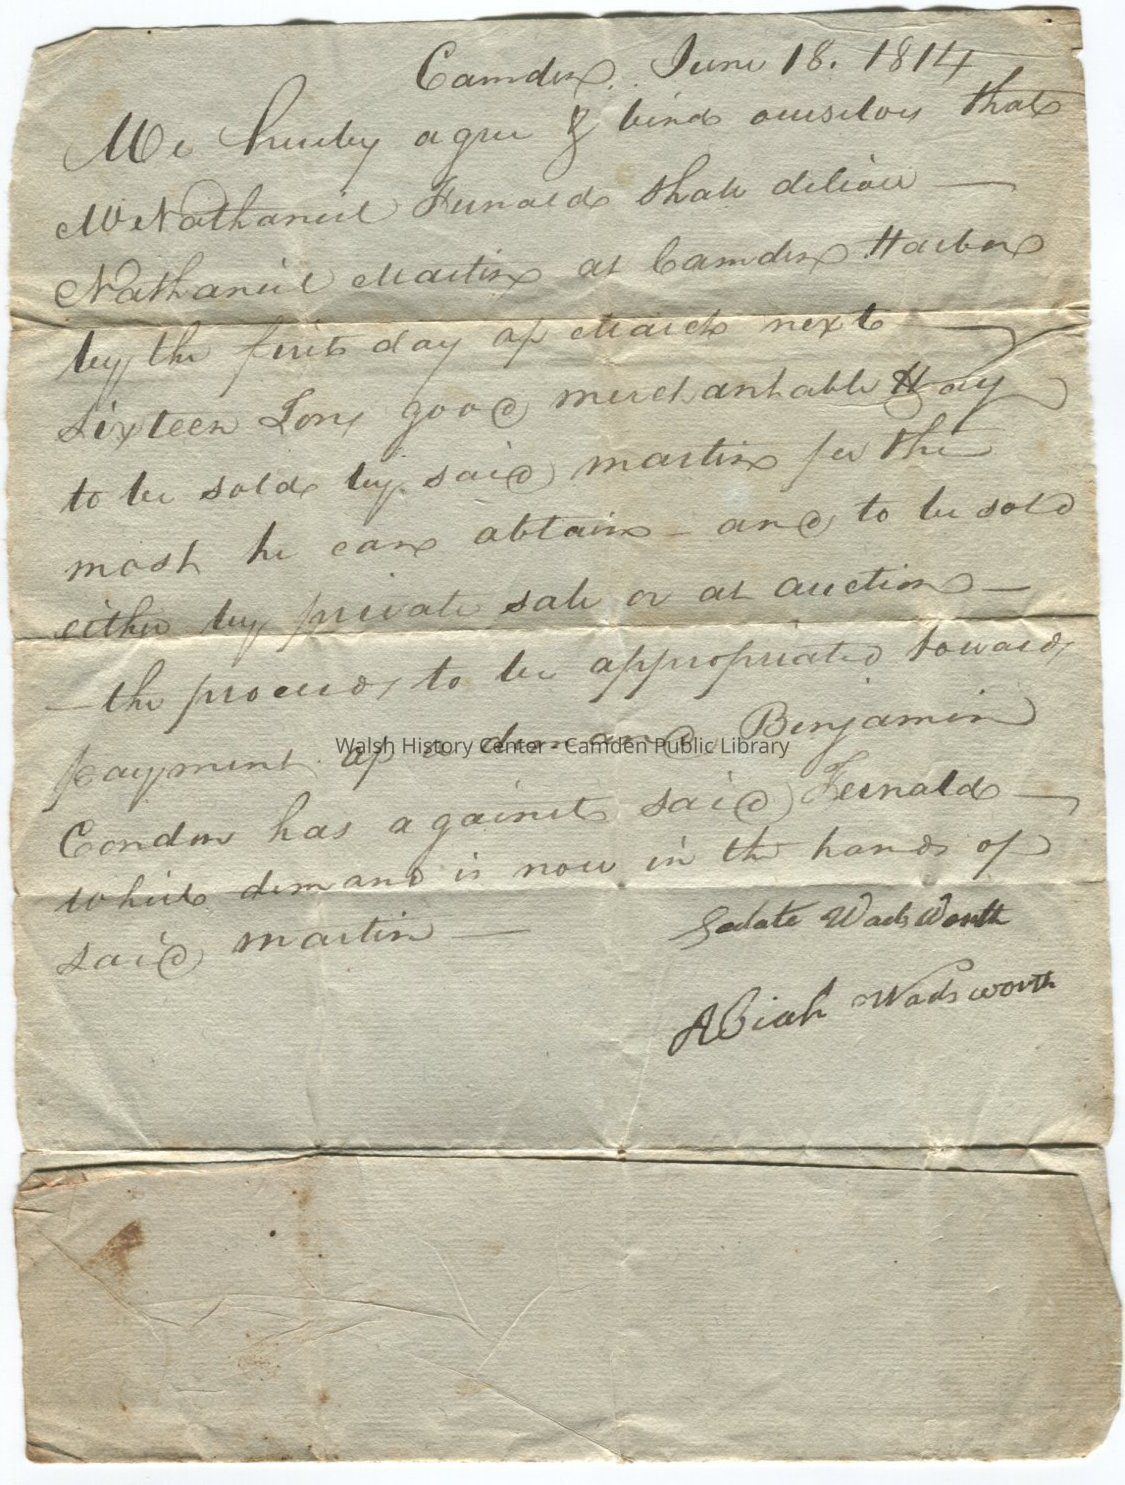 Camden June 18. 1814
We hereby agree & bind ourselves that
Mr Nathaniel Fernald shall deliver —
Nathaniel Martin at Camden Harbor
by the first day of March next —
sixteen Tons good merchantable Hay
to be sold by said martin for the
most he can obtain – and to be sold
either by private sale or at auction —
— the proceeds to be appropriated towards
payment of a demand Benjamin
Condon has against said Fernald —
which demand is now in the hands of
said martin —
Sedate Wadsworth
Abiah Wadsworth
Walsh History Center - Camden Public Library